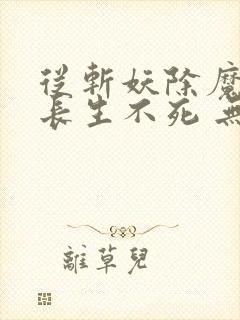 從斬妖除魔
長生不死 無
離草兒